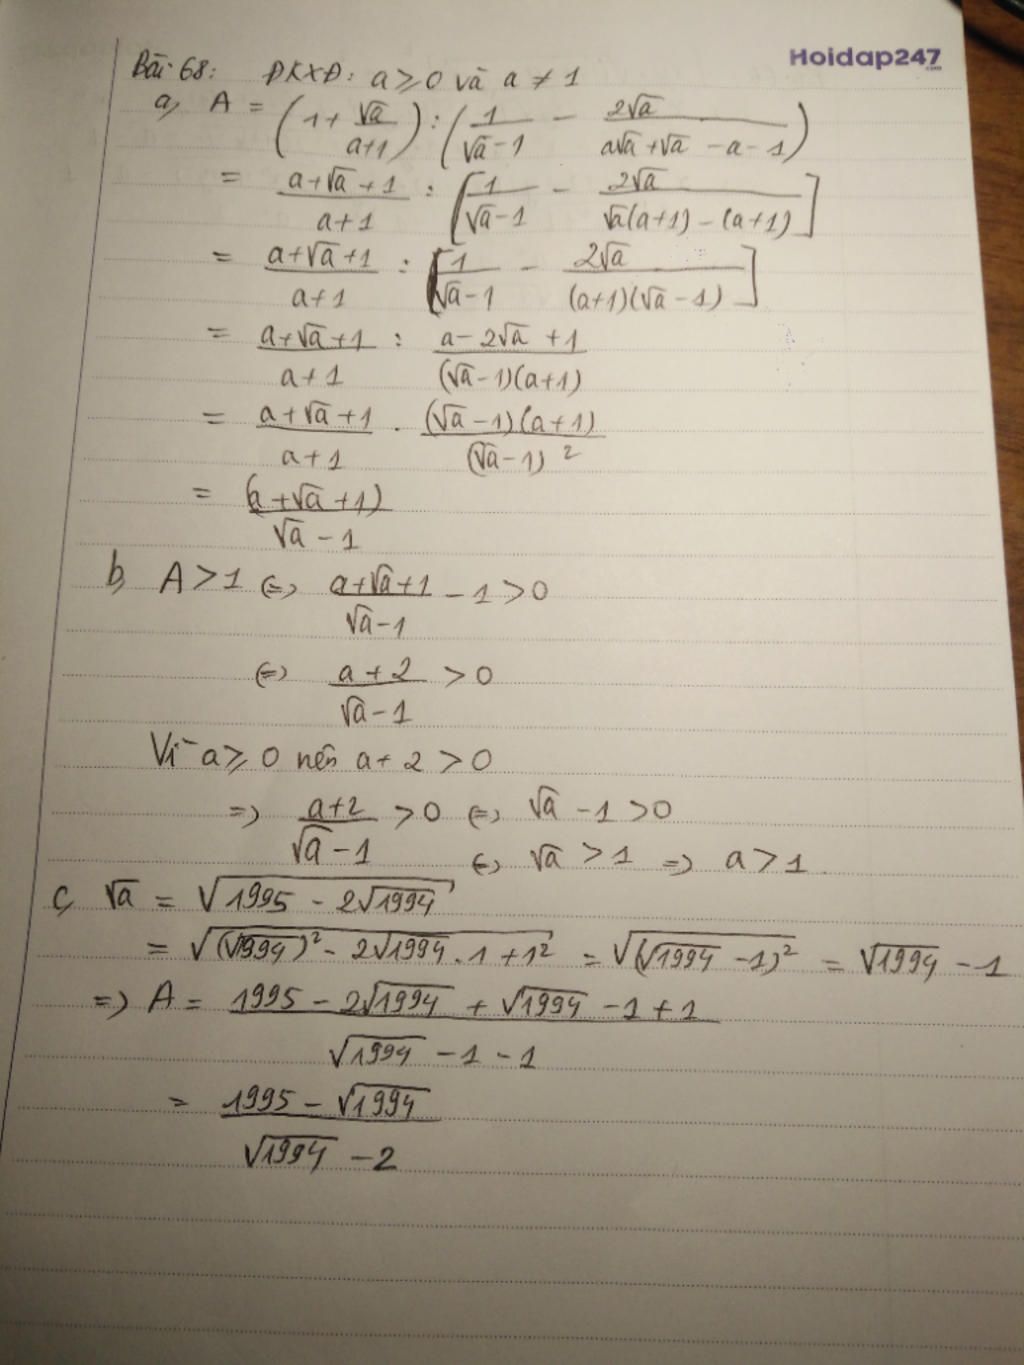 Hoidap247
.com
Bài 68: ĐKXĐ: a ≥ 0 và a ≠ 1
a, A = (1 + √a/(a+1)) : (1/(√a - 1) - 2√a/(a√a + √a - a - 1))
= (a+√a+1)/(a+1) : [1/(√a-1) - 2√a/(√a(a+1) - (a+1))]
= (a+√a+1)/(a+1) : [1/(√a-1) - 2√a/((a+1)(√a-1))]
= (a+√a+1)/(a+1) : (a-2√a+1)/((√a-1)(a+1))
= (a+√a+1)/(a+1) . ((√a-1)(a+1))/(√a-1)²
= (a+√a+1)/(√a-1)
b, A > 1 ⇔ (a+√a+1)/(√a-1) - 1 > 0
⇔ (a+2)/(√a-1) > 0
Vì a ≥ 0 nên a+2 > 0
⇒ (a+2)/(√a-1) > 0 ⇔ √a - 1 > 0
⇔ √a > 1 ⇒ a > 1
c, √a = √(1995 - 2√1994)
= √((√1994)² - 2√1994 . 1 + 1²) = √((√1994 - 1)²) = √1994 - 1
⇒ A = (1995 - 2√1994 + √1994 - 1 + 1)/(√1994 - 1 - 1)
= (1995 - √1994)/(√1994 - 2)